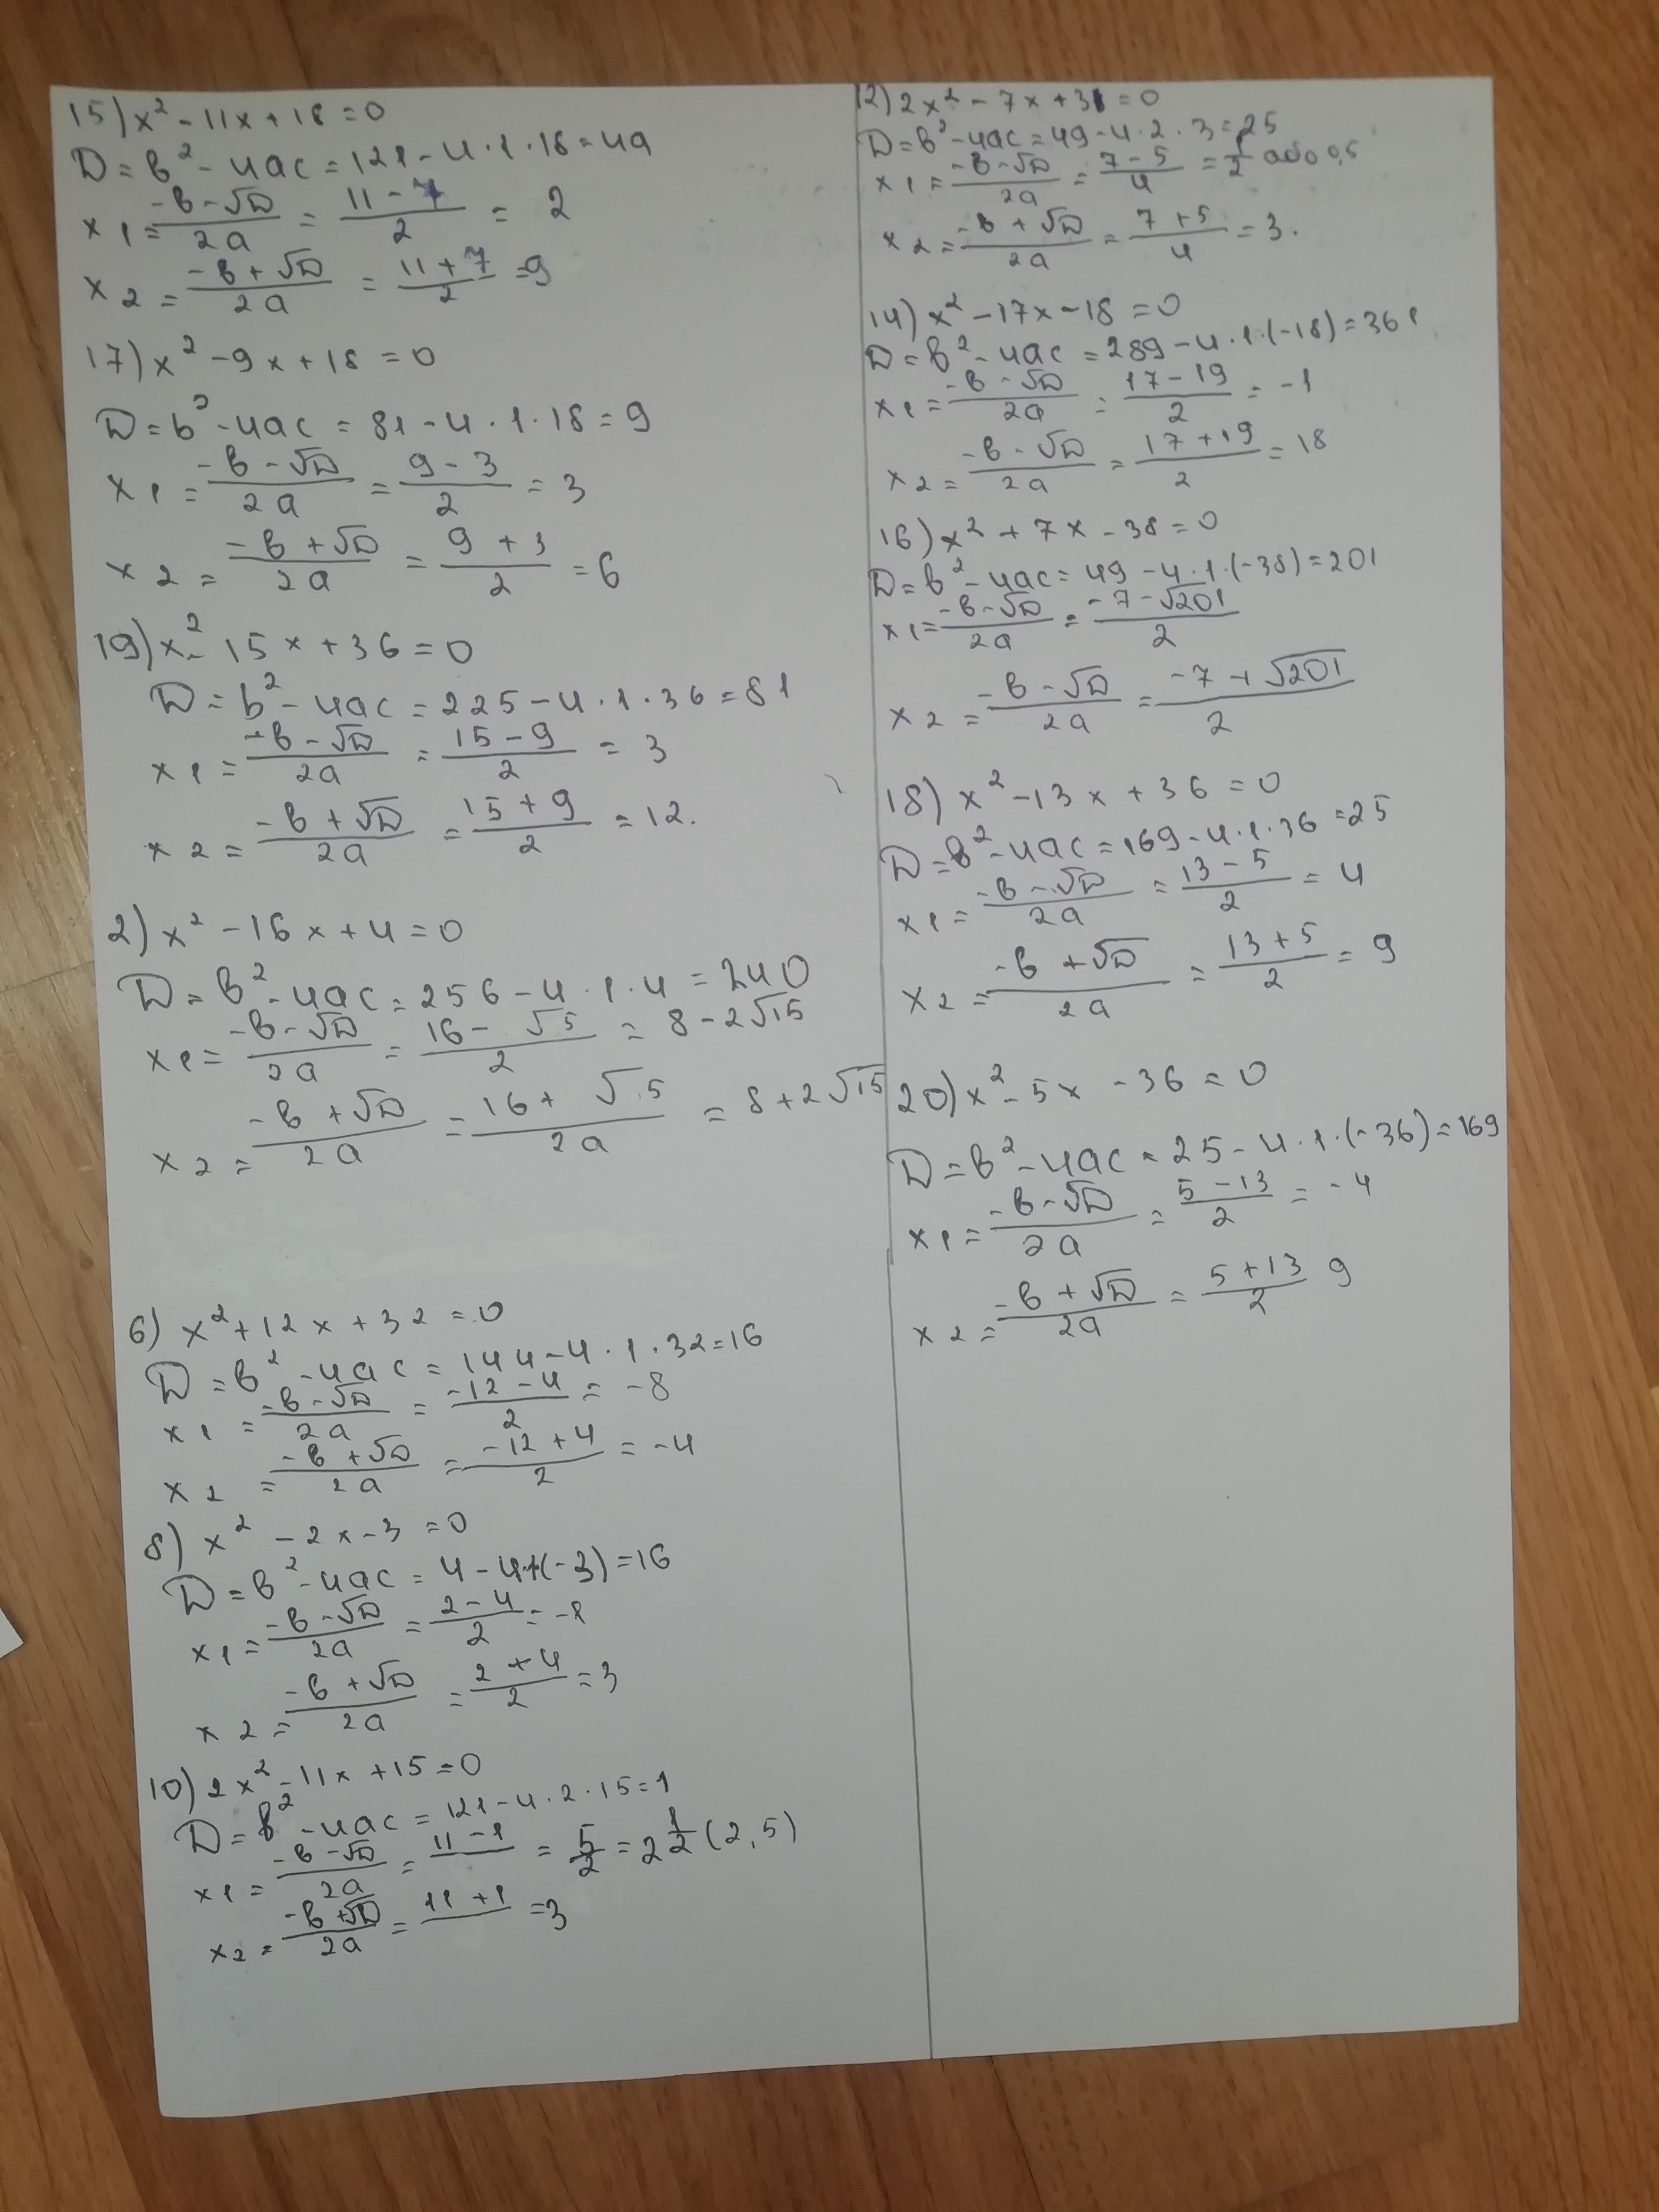 15) x² - 11x + 18 = 0
D = b² - 4ac = 121 - 4·1·18 = 49
x1 = (-b - √D)/2a = (11 - 7)/2 = 2
x2 = (-b + √D)/2a = (11 + 7)/2 = 9
17) x² - 9x + 18 = 0
D = b² - 4ac = 81 - 4·1·18 = 9
x1 = (-b - √D)/2a = (9 - 3)/2 = 3
x2 = (-b + √D)/2a = (9 + 3)/2 = 6
19) x² - 15x + 36 = 0
D = b² - 4ac = 225 - 4·1·36 = 81
x1 = (-b - √D)/2a = (15 - 9)/2 = 3
x2 = (-b + √D)/2a = (15 + 9)/2 = 12.
2) x² - 16x + 4 = 0
D = b² - 4ac = 256 - 4·1·4 = 240
x1 = (-b - √D)/2a = (16 - √5)/2 = 8 - 2√15
x2 = (-b + √D)/2a = (16 + √.5)/2a = 8 + 2√15
6) x² + 12x + 32 = 0
D = b² - 4ac = 144 - 4·1·32 = 16
x1 = (-b - √D)/2a = (-12 - 4)/2 = -8
x2 = (-b + √D)/2a = (-12 + 4)/2 = -4
8) x² - 2x - 3 = 0
D = b² - 4ac = 4 - 4·1·(-3) = 16
x1 = (-b - √D)/2a = (2 - 4)/2 = -1
x2 = (-b + √D)/2a = (2 + 4)/2 = 3
10) 2x² - 11x + 15 = 0
D = b² - 4ac = 121 - 4·2·15 = 1
x1 = (-b - √D)/2a = (11 - 1)/ = 5/2 = 2 1/2 (2,5)
x2 = (-b + √D)/2a = (11 + 1)/ = 3
12) 2x² - 7x + 3 = 0
D = b² - 4ac = 49 - 4·2·3 = 25
x1 = (-b - √D)/2a = (7 - 5)/4 = 1/2 або 0,5
x2 = (-b + √D)/2a = (7 + 5)/4 = 3.
14) x² - 17x - 18 = 0
D = b² - 4ac = 289 - 4·1·(-18) = 361
x1 = (-b - √D)/2a = (17 - 19)/2 = -1
x2 = (-b - √D)/2a = (17 + 19)/2 = 18
16) x² + 7x - 38 = 0
D = b² - 4ac = 49 - 4·1·(-38) = 201
x1 = (-b - √D)/2a = (-7 - √201)/2
x2 = (-b - √D)/2a = (-7 + √201)/2
18) x² - 13x + 36 = 0
D = b² - 4ac = 169 - 4·1·36 = 25
x1 = (-b - √D)/2a = (13 - 5)/2 = 4
x2 = (-b + √D)/2a = (13 + 5)/2 = 9
20) x² - 5x - 36 = 0
D = b² - 4ac = 25 - 4·1·(-36) = 169
x1 = (-b - √D)/2a = (5 - 13)/2 = -4
x2 = (-b + √D)/2a = (5 + 13)/2 9